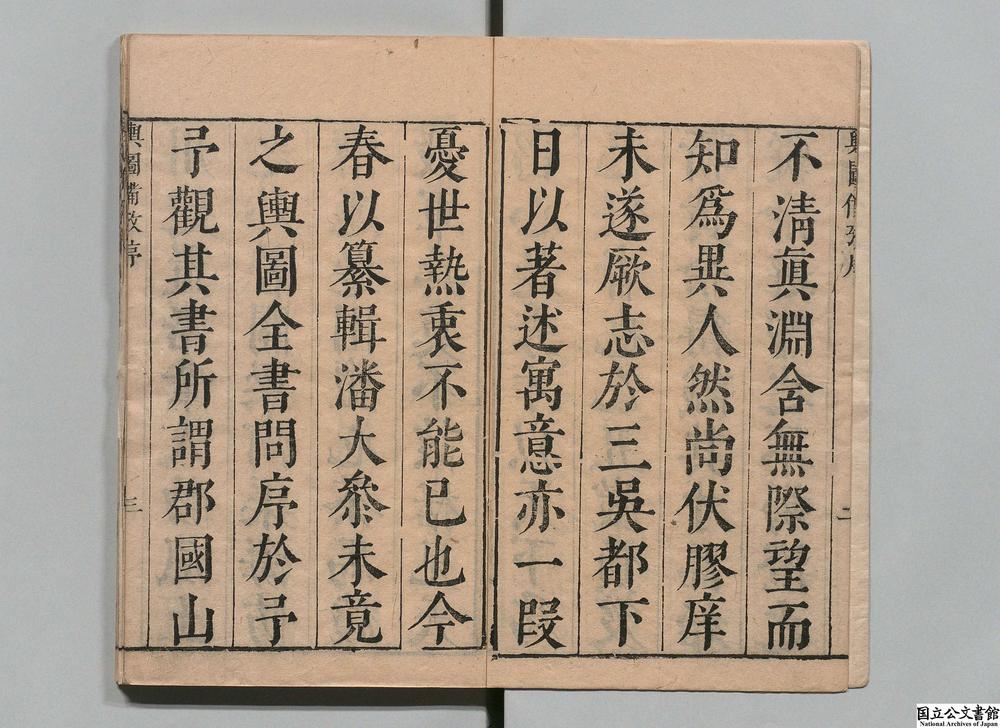 輿圖備攷序
二
不清真淵含無際望而
知爲異人然尚伏膠庠
未遂厥志於三吳都下
日以著述寓意亦一段
憂世熱衷不能已也今
春以纂輯潘大叅未竟
之輿圖全書問序於予
予觀其書所謂郡國山
輿圖備攷序
三
国立公文書館
National Archives of Japan